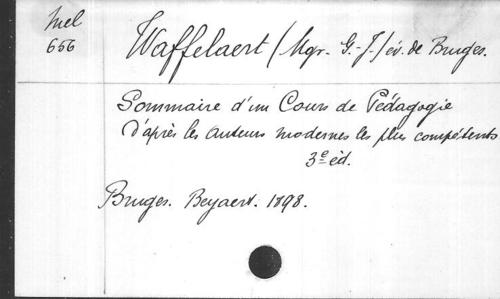 Mel
656
Waffelaert (Mgr. G.-J.) év. de Bruges.
Sommaire d'un Cours de Pédagogie
d'après les auteurs modernes les plus compétents
3e éd.
Bruges. Beyaert. 1898.